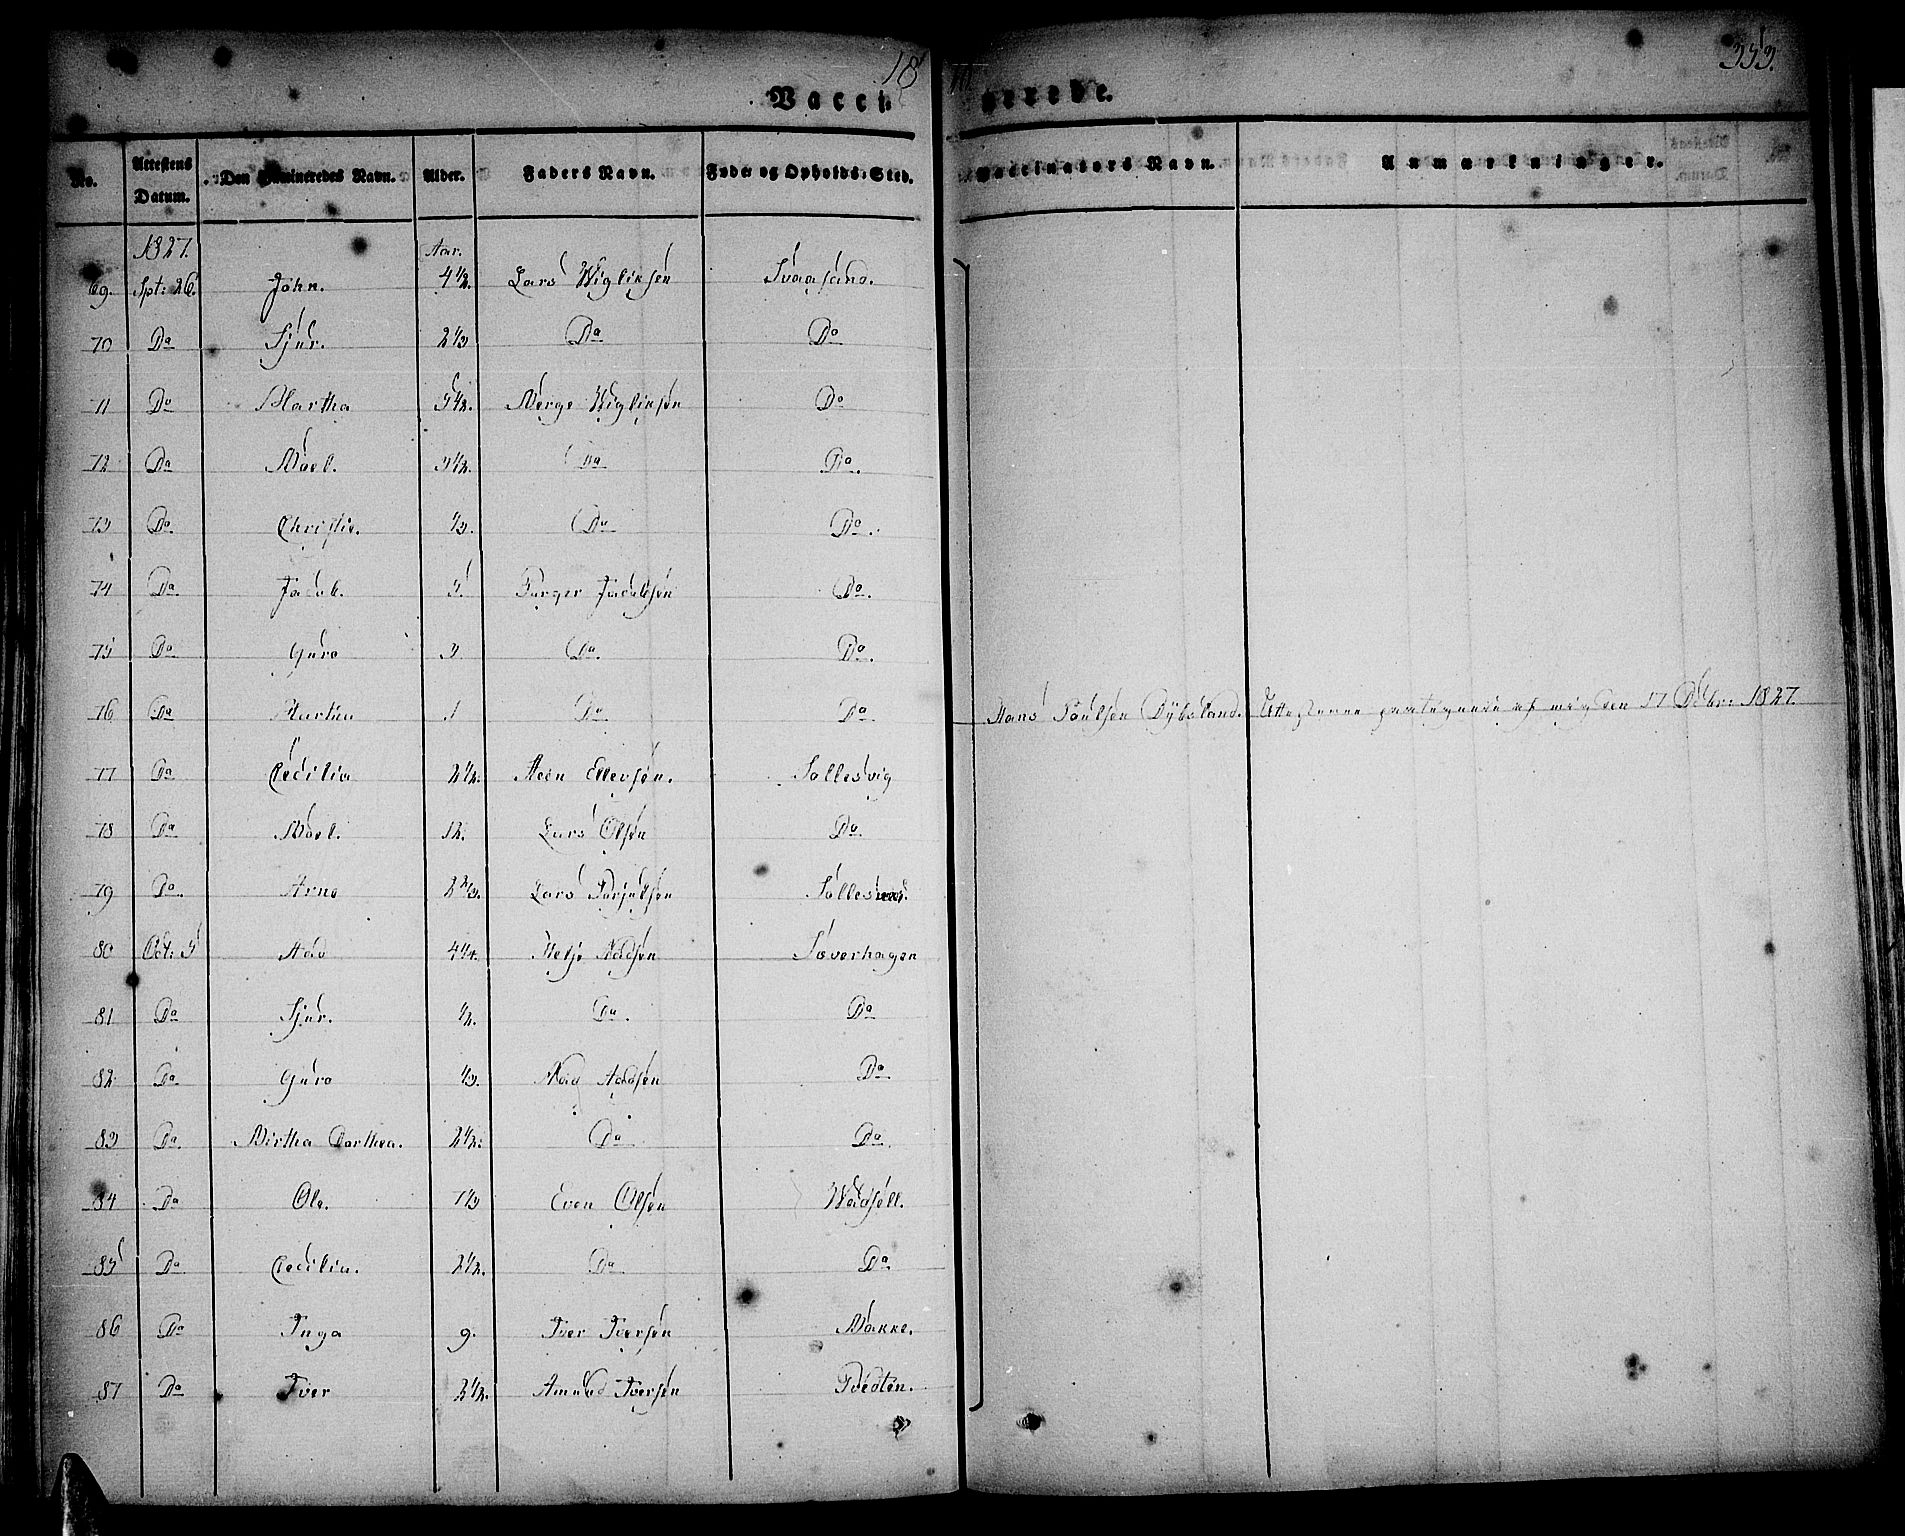 18 353.
Vaccinerede.
No. Attestens Datum. Den Vaccineredes Navn. Alder. Faders Navn. Føde- og Opholds-Sted. Vaccinateurs Navn. Anmærkninger.
1827. Aar.
69. Spt: 26. John. 4 1/2. Lars Wiglixsen Svaasand.
70 Do Sjur. 2 1/3 Do Do
71 Do Martha 5 1/2. Børge Wiglixsen Do
72 Do Boel. 3 1/2. Do Do.
73 Do Christie. 1/3. Do Do.
74 Do. Jacob. 5. Jacobsen Do.
75 Do Guro 3 Do. Do.
76 Do Martha 1 Do Do Hans Poulsen Dybsland. Attesterne paategnede af mig den 17 Debr: 1827.
77 Do Cecilia 2 1/2. Sten Ellevsen. Sollesvig
78 Do Boel. 12. Lars Olsen Do.
79 Do. Arne 2 2/3. Lars Torjulsen Solles
80 Oct: 5 Aad 4 1/4. Helje Aadsen Soverhagen
81 Do Sjur. 1/2. Do. Do
82 Do Guro 1/3. Aadsen Do.
83 Do. Birtha Dorthea. 2 1/2. Do Do.
84 Do Ole. 7 1/3 Even Olsen Wadsell.
85 Do Cecilia. 2 1/2. Do Do.
86 Do Inga 9. Iver Iversen Bakke.
87 Do Iver 2 1/2. Amund Iversen Tvedten.